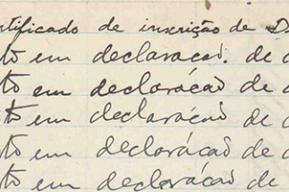 rtificado de inscrição de D
to em declaracaõ. de d
to em declarácaõ de d
to em declarácaõ de d
to em declarácaõ de d
to em declarácaõ de d